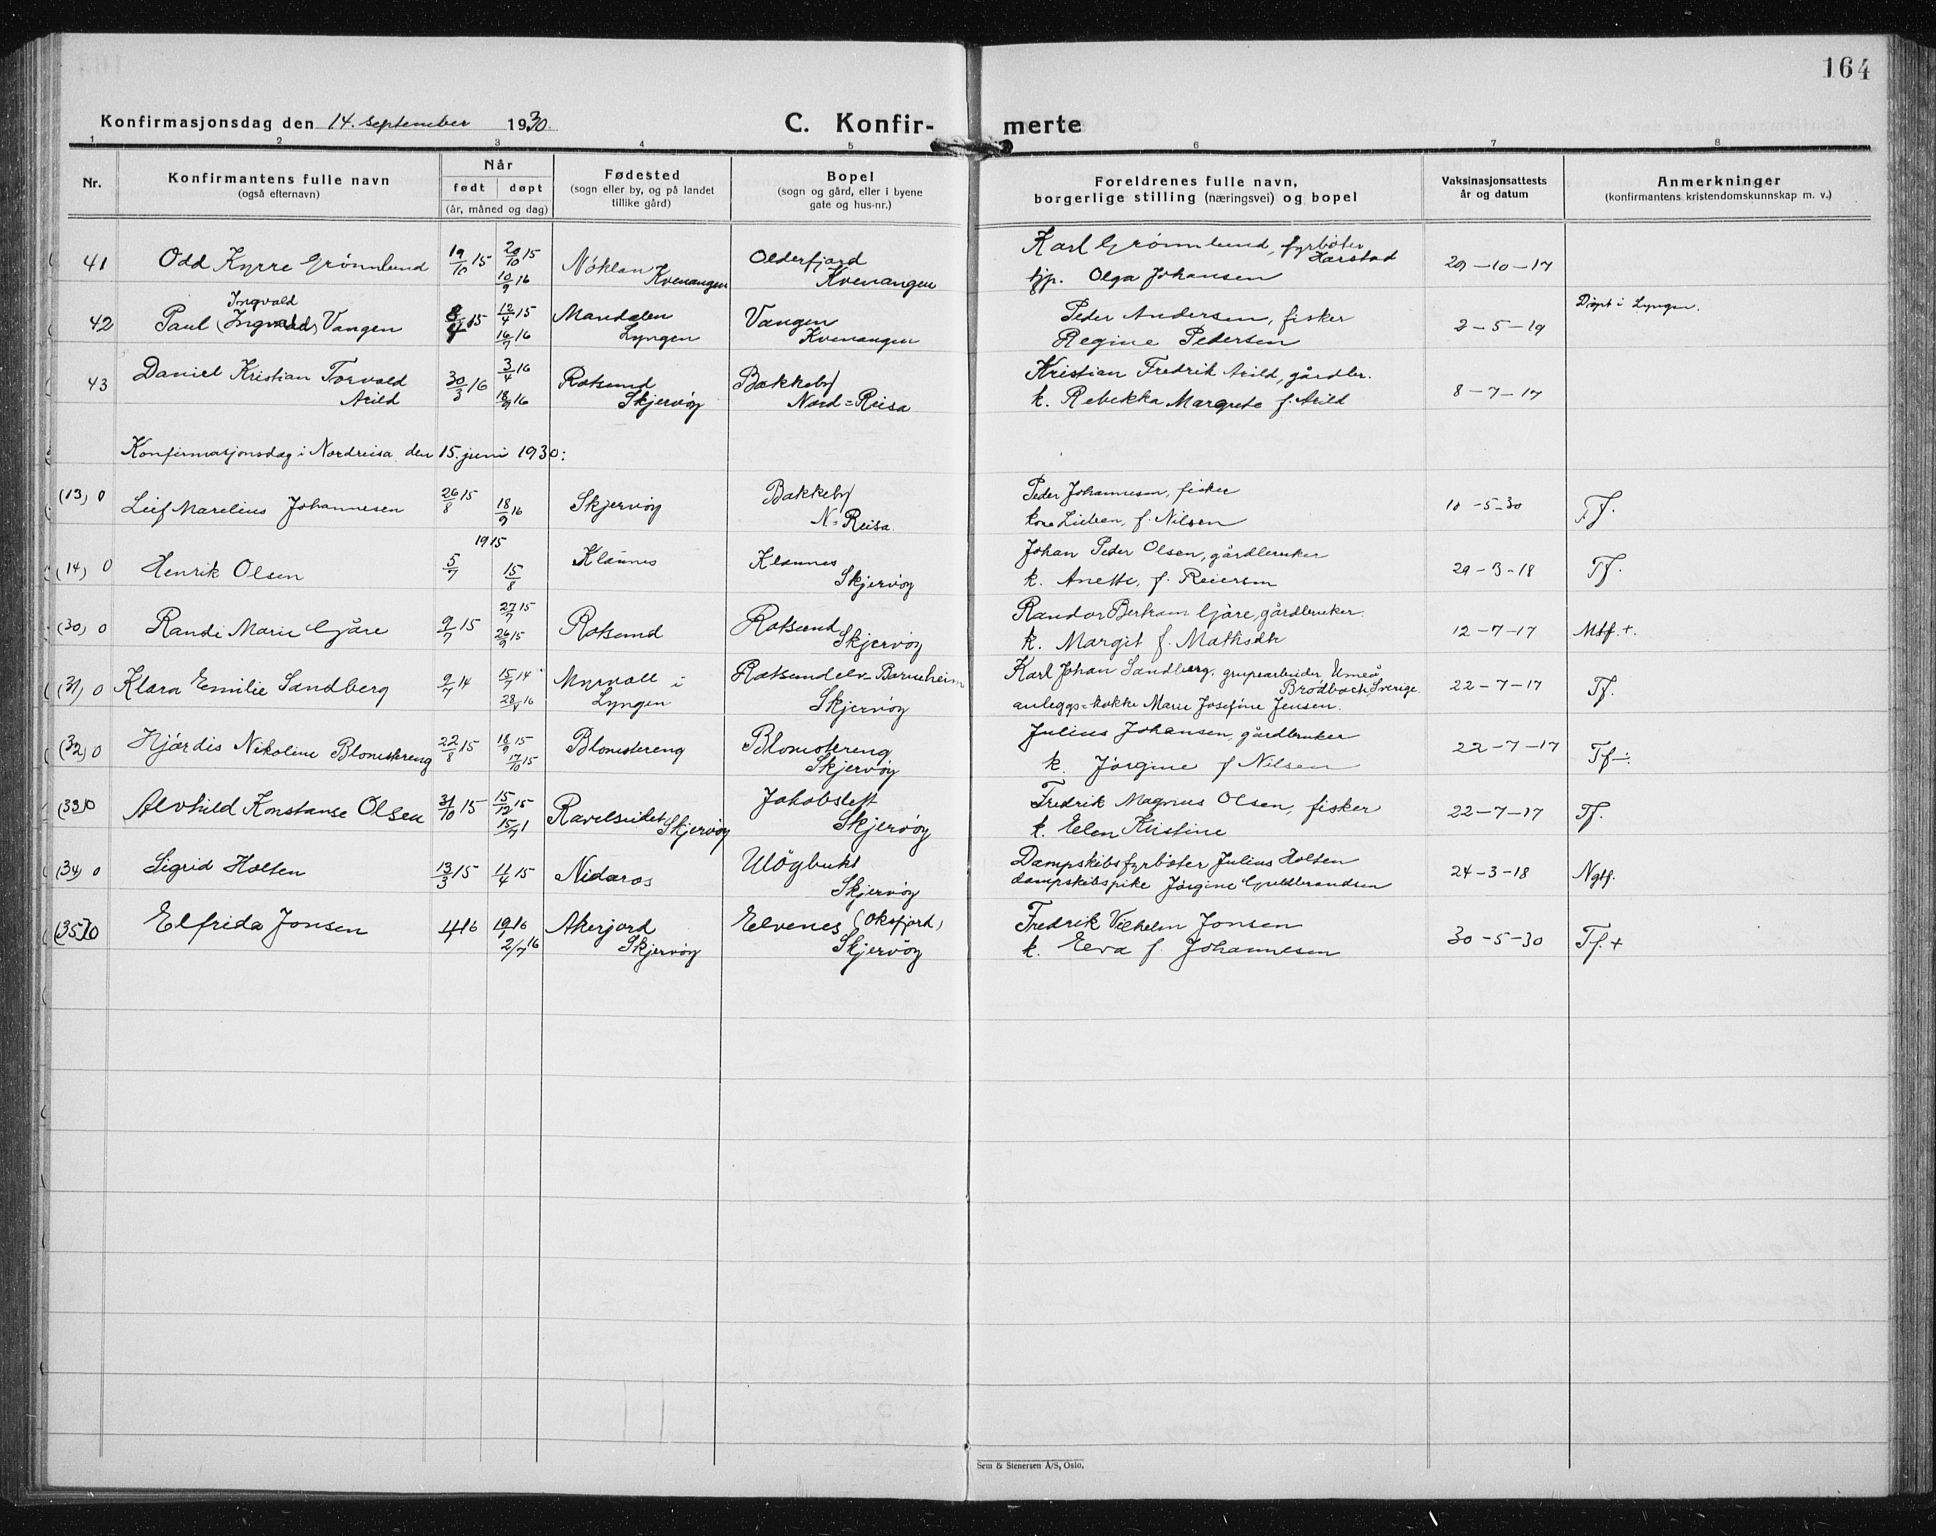 164
Konfirmasjonsdag den 14. september 1930.
C. Konfir-merte
1 2 3 4 5 6 7 8
Nr.
Konfirmantens fulle navn
(også efternavn)
Når
født døpt
(år, måned og dag)
Fødested
(sogn eller by, og på landet
tillike gård)
Bopel
(sogn og gård, eller i byene
gate og hus-nr.)
Foreldrenes fulle navn,
borgerlige stilling (næringsvei) og bopel
Vaksinasjonsattests
år og datum
Anmerkninger
(konfirmantens kristendomskunnskap m. v.)
41 Odd Kyrre Grønnlund 19/10 15 29/10 15 10/9 16 Nöklan Kvenangen Olderfjord Kvenangen Karl Grønnlund, fyrbøter Harstad
tjp. Olga Johansen 29-10-17
42 Paul (Ingvald) Vangen Ingvald 8/4 15 12/4 15 16/7 16 Mandalen Lyngen Vangen Kvenangen Peder Andersen, fisker
Regine Pedersen 2-5-19 Døpt i Lyngen.
43 Daniel Kristian Torvald
Arild 30/3 16 3/4 16 Rotsund Skjervöy Bakkeby Nord=Reisa Kristian Fredrik Arild, gårdbr.
k. Rebekka Margrete f. Arild 8-7-17
Konfirmasjonsdag i Nordreisa den 15. juni 1930:
(13) 0 Leif Marelius Johannesen 26/8 15 18/9 16 Skjervöy Bakkeby N=Reisa Peder Johannesen, fisker
f. Nilsen 10-5-30 Tf.
(14) 0 Henrik Olsen 5/7 1915 15/8 Klaunes Klaunes Skjervöy Johan Peder Olsen, gårdbruker
k. Anette, f. Reiersen 29-3-18 Tf.
(30) 0 Randi Marie Gjåre 9/7 15 27/7 15 26/9 15 Rotsund Rotsund Skjervöy Randor Bertram Gjåre, gårdbruker.
k. Margit f. Mathsdtr 12-7-17 Mtf.+.
(31) 0 Klara Emilie Sandberg 9/7 14 15/7 14 Myrvoll i Lyngen Rotsundelv- Skjervöy Karl Johan Sandberg, grupearbeider, Umeå
Sverige
anleggs=kokke Marie Josefine Jensen. 22-7-17 Tf.
(32) 0 Hjørdis Nikoline Blomstereng 22/8 15 18/9 15 17/10 15 Blomstereng Blomstereng Skjervöy Julius Johansen, gårdbruker
k. Jørgine f Nilsen 22-7-17 Tf÷.
(33) 0 Alvhild Konstanse Olsen 31/10 15 15/12 15 Ravelseidet Skjervöy Jakobslett Skjervöy Fredrik Magnus Olsen, fisker
k. Elen Kristine 22-7-17 Tf.
(34) 0 Sigrid Holten 13/3 15 11/4 15 Nidaros Ulögbukt Skjervöy Dampskibsfyrbøter Julius Holten
dampskibspike Jørgine Guldbrandsen 24-3-18 Ngtf.
(35) 0 Elfrida Jonsen 16 2/7 16 Akerjord Skjervöy Elvenes (Oksfjord) Skjervöy Fredrik Vilhelm Jonsen
k. Elva f Johannesen 30-5-30 Tf.+
Sem & Stenersen A/S, Oslo.